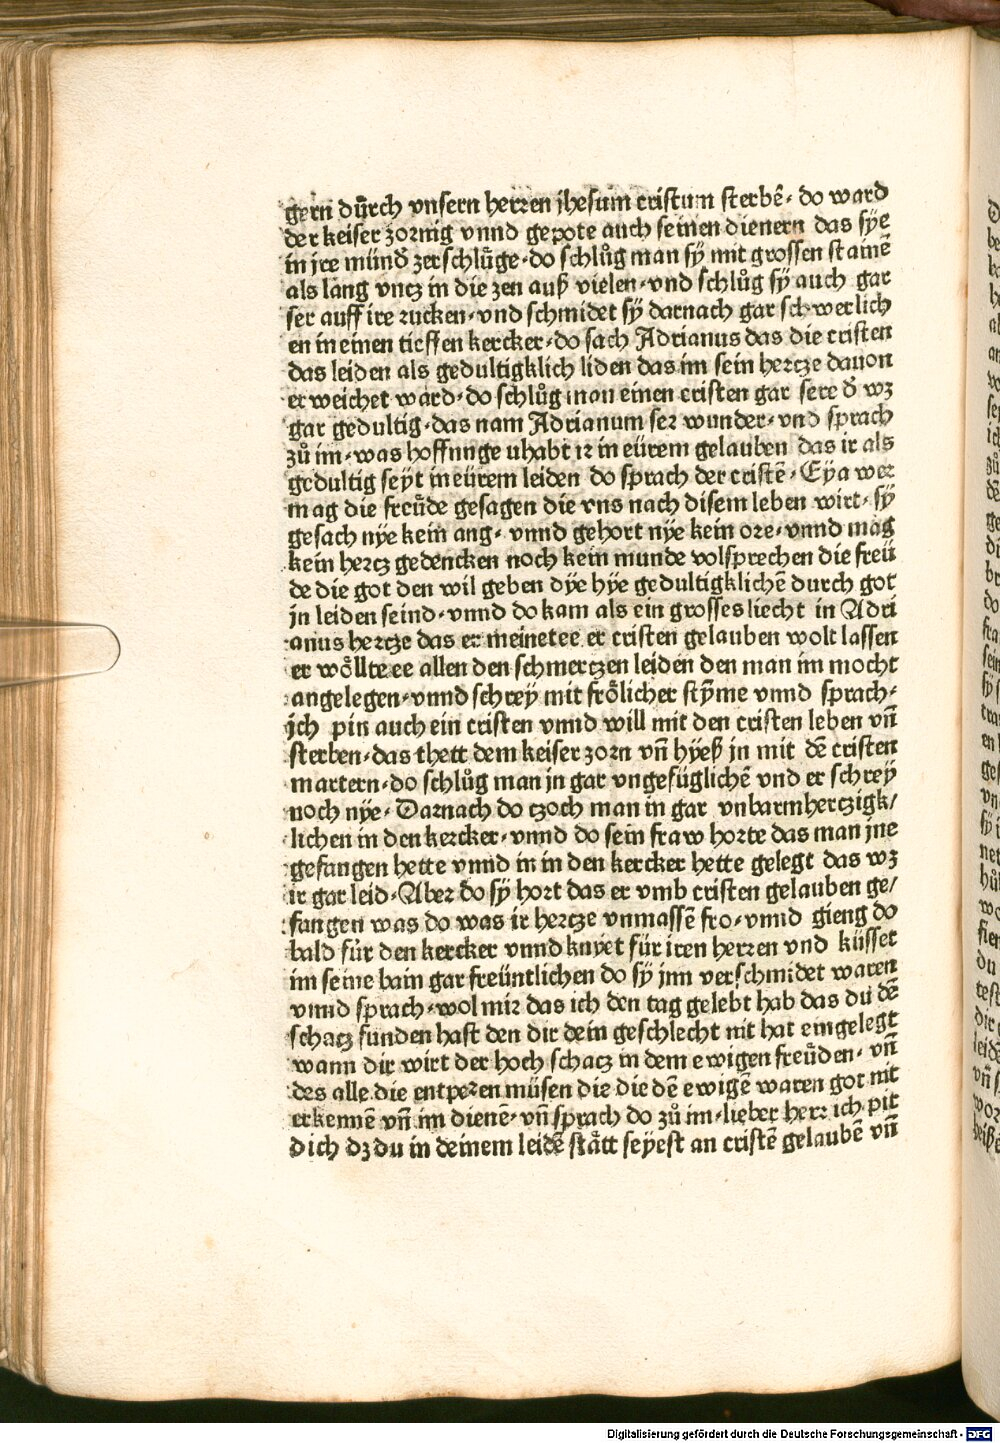 gern dũrch vnsern herren jhesum cristum sterbē· do ward
der keiser zornig vnnd gepote auch seinen dienern das sÿe
in jre münd zerschlüge·do schlůg man sÿ mit grossen stainē
als lang vncz in die zen auß vielen·vnd schlůg sÿ auch gar
ser auff ire rucken·vnd schmidet sÿ darnach gar schwerlich
en in einen tieffen kercker·do sach Adrianus das die cristen
das leiden als gedultigklich liden das im sein hercze dauon
erweichet ward·do schlůg man einen cristen gar sere ď wz
gar gedultig·das nam Adrianum ser wunder·vnd sprach
zů im·was hoffnnge uhabt ir in eürem gelauben das ir als
gedultig seÿt in eürem leiden do sprach der cristē·Eya wer
mag die freüde gesagen die vns nach disem leben wirt·sÿ
gesach nÿe kein ang·vnnd gehort nÿe kein ore·vnnd mag
kein hercz gedencken noch kein munde volsprechen die freü
de die got den wil geben dÿe hÿe gedultigklichē durch got
jn leiden seind·vnnd do kam als ein grosses liecht in Adri
anus hercze das er meinetee er cristen gelauben wolt lassen
er wöllte ee allen den schmerczen leiden den man im mocht
angelegen·vnnd schreÿ mit frölicher stÿme vnnd sprach·
jch pin auch ein cristen vnnd will mit den cristen leben vñ
sterben·das thett dem keiser zorn vñ hÿeß jn mit dē cristen
martern·do schlůg man jn gar vngefüglichē vnd er schreÿ
noch nÿe·Darnach do czoch man in gar vnbarmherczigk/
lichen in den kercker·vnnd do sein fraw horte das man jne
gefangen hette vnnd in in den kercker hette gelegt das wz
ir gar leid·Aber do sÿ hort das er vmb cristen gelauben ge/
fangen was do was ir hercze vnmassē fro·vnnd gieng do
bald für den kercker vnnd knÿet für iren herren vnd küsset
im seine bain gar freüntlichen do sÿ jnn verschmidet waren
vnnd sprach·wol mir das ich den tag gelebt hab das du dē
schacz funden hast den dir dein geschlecht nit hat eingelegt
wann dir wirt der hoch schacz in dem ewigen freüden·vñ
des alle die entperen müsen die die dē ewigē waren got nit
erkennē vñ im dienē·vñ sprach do zů im·lieber herr ich pit
dich dz du in deinem leidē stätt seÿest an cristē gelaubē vñ
Digitalisierung gefördert durch die Deutsche Forschungsgemeinschaft - DFG